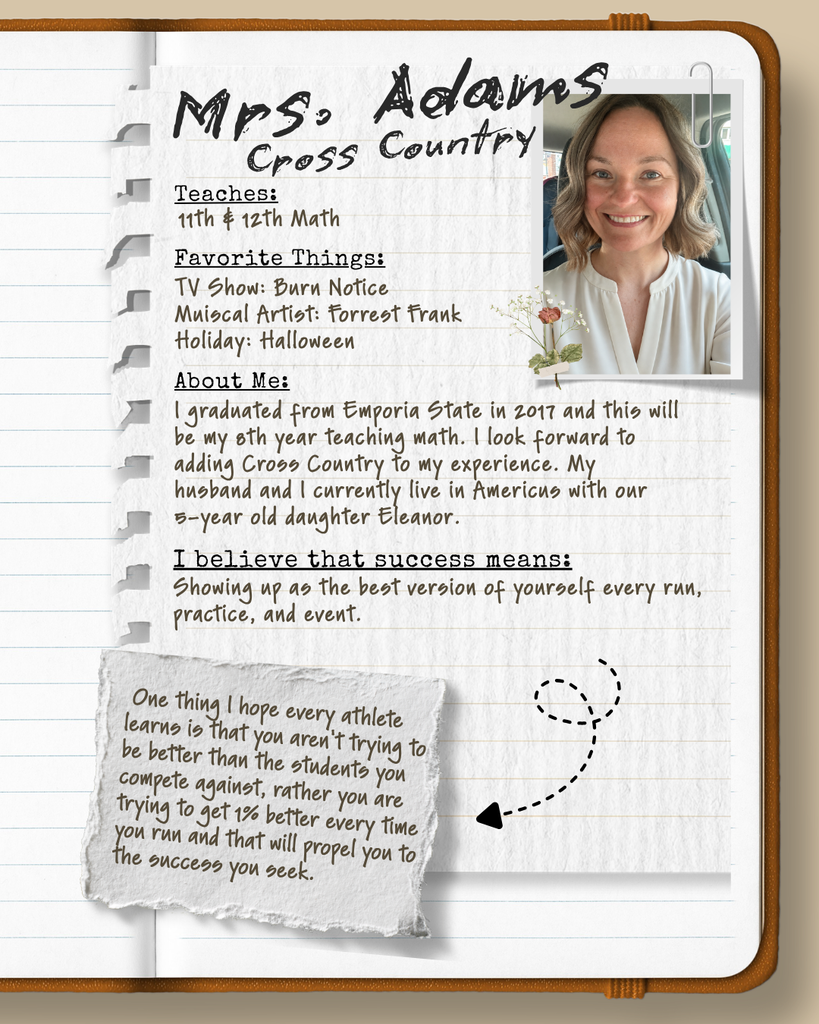 Mrs. Adams
Cross Country
Teaches:
11th & 12th Math
Favorite Things:
TV Show: Burn Notice
Muiscal Artist: Forrest Frank
Holiday: Halloween
About Me:
I graduated from Emporia State in 2017 and this will
be my 8th year teaching math. I look forward to
adding Cross Country to my experience. My
husband and I currently live in Americus with our
5-year old daughter Eleanor.
I believe that success means:
Showing up as the best version of yourself every run,
practice, and event.
One thing I hope every athlete
learns is that you aren't trying to
be better than the students you
compete against, rather you are
trying to get 1% better every time
you run and that will propel you to
the success you seek.